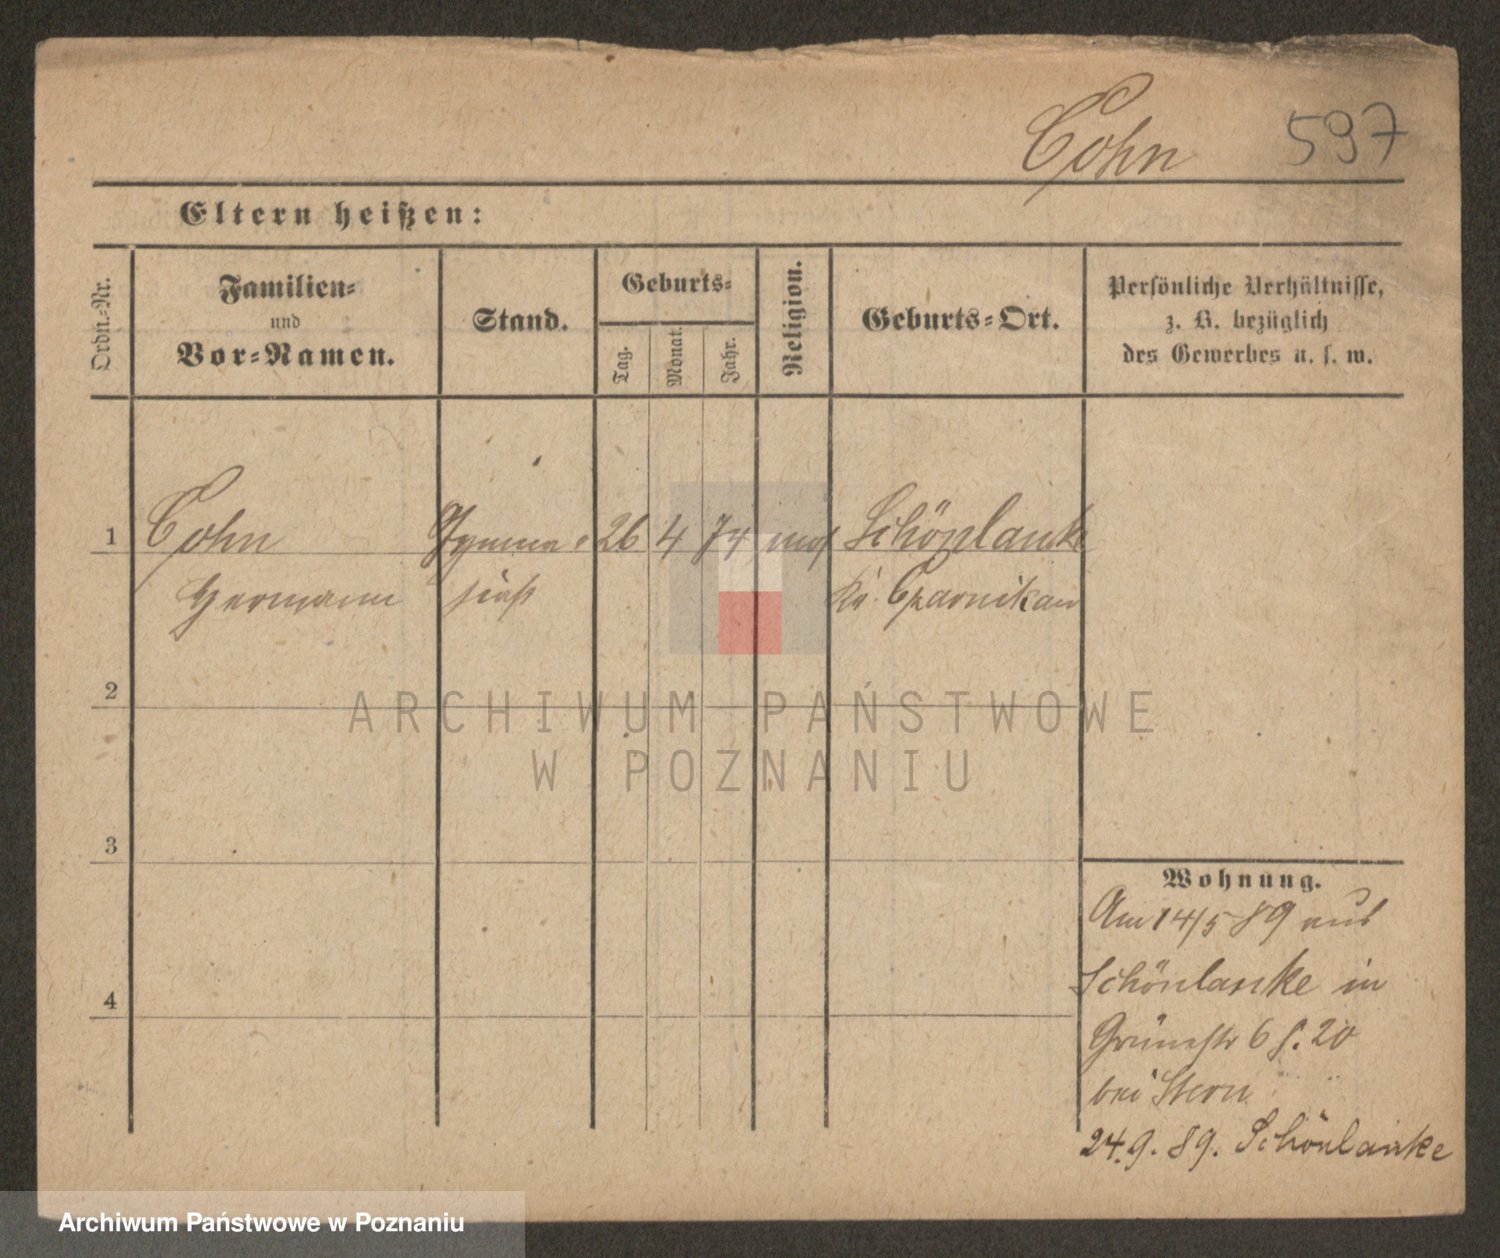 Cohn 597
Eltern heißen:
Ordn.-Nr.
Familien-
und
Vor-Namen.
Stand.
Geburts-
Tag.
Monat.
Jahr.
Religion.
Geburts-Ort.
Persönliche Verhältnisse,
z. B. bezüglich
des Gewerbes u. s. w.
1 Cohn Gymna- 26 4 74 mos Schönlanke
Hermann siast Kr. Czarnikau
2
3
4
Wohnung.
Am 14/5 89 aus
Schönlanke in
Grünestr 6 f. 20
bei Stern
24.9.89. Schönlanke
ARCHIWUM PAŃSTWOWE
W POZNANIU
Archiwum Państwowe w Poznaniu